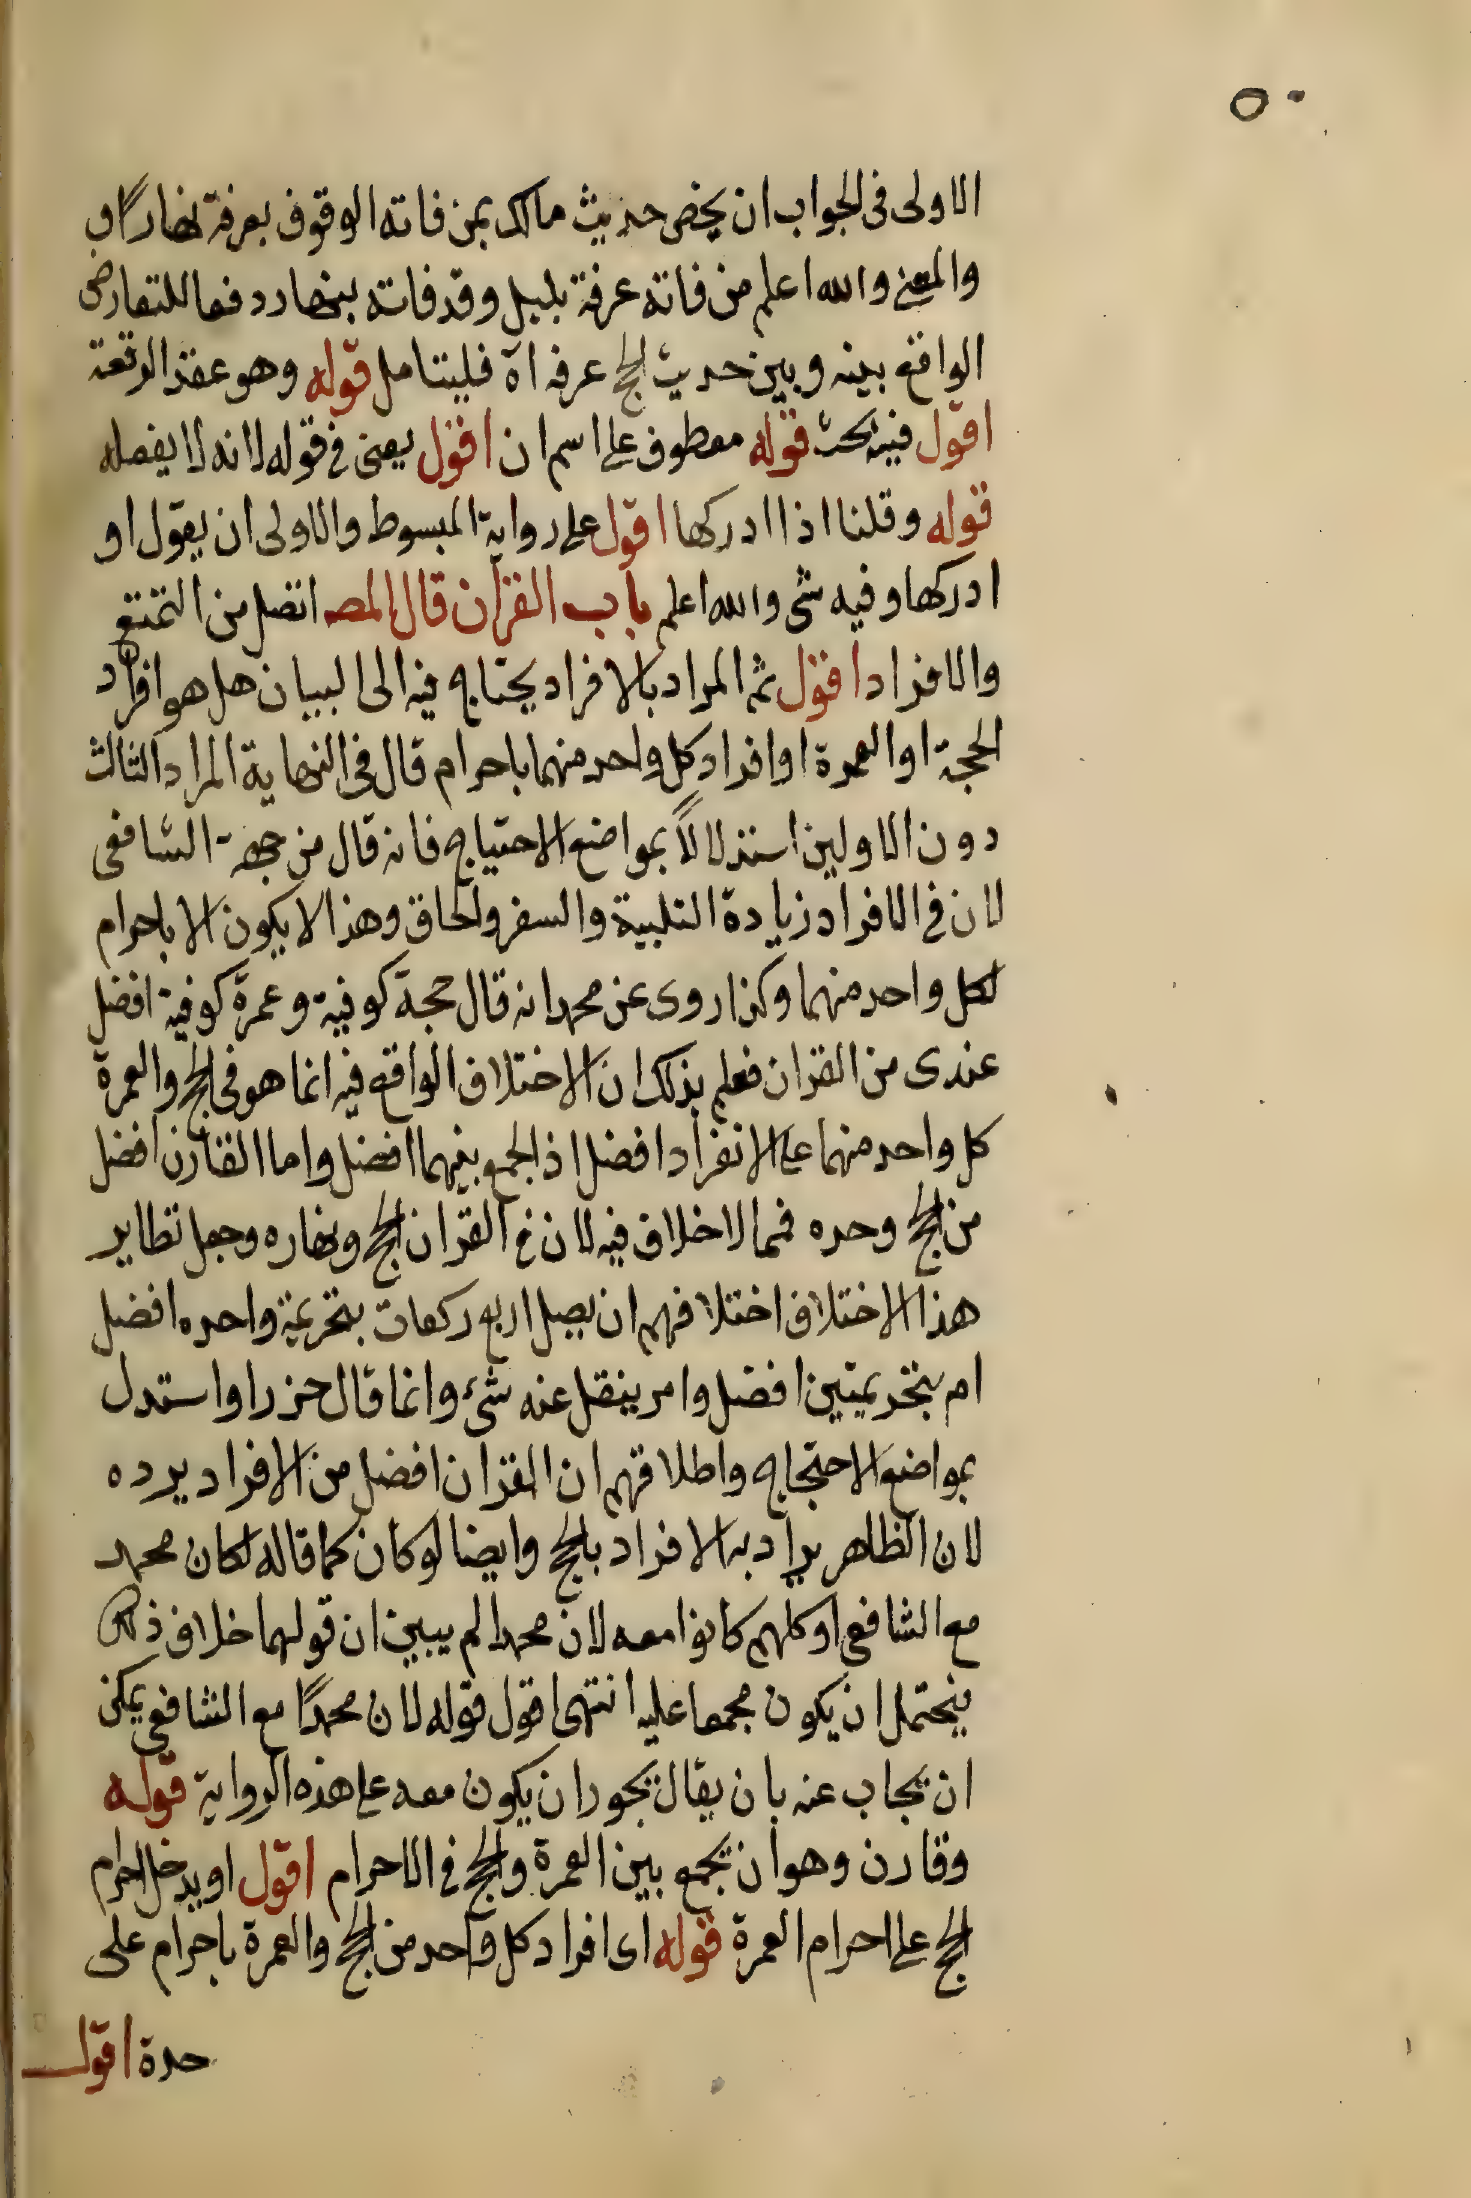 ٥٠
الاولى فى الجواب ان يخص حديث مالك بمن فاته الوقوف بعرفة نهارا او
والمعنى والله اعلم من فاته عرفة بليل وقد فاته بنهار دفعا للتعارض
الواقع بينه وبين حديث الحج عرفه اه فليتامل قوله وهو عقد الرتعة
اقول فيه بحث قوله معطوف على اسم ان اقول يعنى فى قوله لانه لا يفصله
قوله وقلنا اذا ادركها اقول على رواية المبسوط والاولى ان يقول او
ادركها وفيه شى والله اعلم باب القران قال المصه اتضل من التمتع
والافراد اقول ثم المراد بالافراد يحتاج فيه الى البيان هل هو افراد
الحجة او العمرة او افراد كل واحد منهما باحرام قال فى النهاية المراد الثالث
دون الاولين استدلالاً بمواضع الاحتياج فانه قال من جهة الشافعى
لان فى الافراد زيادة التلبية والسفر والحاق وهذا لا يكون الا باحرام
لكل واحد منهما وكذا روى عن محمد انه قال حجة كوفية وعمرة كوفية افضل
عندى من القران فعلم بذلك ان الاختلاف الواقع فيه انما هو فى الحج والعمرة
كل واحد منهما على الانفراد افضل اذ الجمع بينهما افضل واما القارن افضل
من الحج وحده فمما لا خلاف فيه لان فى القران الحج ونهاره وجعل نظاير
هذا الاختلاف اختلافهم ان يصل اربع ركعات بتحريمة واحده افضل
ام بتحريمتين افضل وامر ينقل عنه شئ وانما قال حزرا واستدل
بمواضع الاحتجاج واطلاقهم ان القران افضل من الافراد يرده
لان الظاهر يراد به الافراد بالحج وايضا لو كان كما قاله لكان محمد
مع الشافعى او كلهم كانوا معه لان محمدا لم يبين ان قولهما خلاف ذلك
فيحتمل ان يكون مجمعا عليه انتهى اقول قوله لان محمدًا مع الشافعى يمكن
ان يجاب عنه بان يقال يجوز ان يكون معه على هذه الرواية قوله
وقارن وهو ان يجمع بين العمرة والحج فى الاحرام اقول او يدخل احرام
الحج على احرام العمرة قوله اى افراد كل واحد من الحج والعمرة باحرام على
حدة اقول